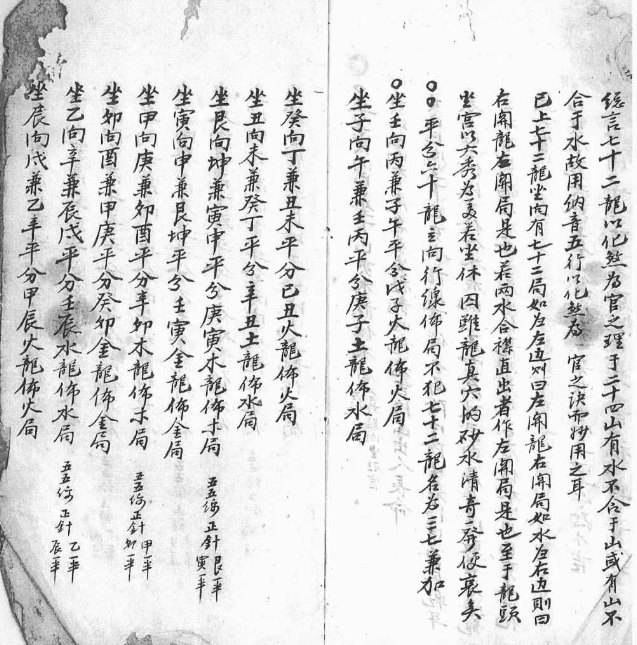 總言七十二龍以化煞為官之理于二十四山有水不合于山或有山不
合于水故用纳音五行以化煞為官之訣而妙用之耳
已上七十二龍坐内有七十二局如水在左边则曰左開龍右開局如水在右边則曰
右開龍左開局是也若两水合襟直出者作左開局是也至于龍頭
坐宫以大秀為美若坐休囚雖龍真穴的砂水清奇一發便衰矣
平分六十龍立向行線佈局不犯七十二龍名為三七兼加
坐壬向丙兼子午平分戊子火龍佈火局
坐子向午兼壬丙平分庚子土龍佈水局
坐癸向丁兼丑未平分己丑火龍佈火局
坐丑向未兼癸丁平分辛丑土龍佈水局
坐艮向坤兼寅申平分庚寅木龍佈木局 五五縫正針艮一半寅一半
坐寅向申兼艮坤平分壬寅金龍佈金局
坐甲向庚兼卯酉平分辛卯木龍佈木局 五五縫正針甲一半卯一半
坐卯向酉兼甲庚平分癸卯金龍佈金局
坐乙向辛兼辰戌平分壬辰水龍佈水局 五五縫正針乙一半辰一半
坐辰向戌兼乙辛平分甲辰火龍佈火局